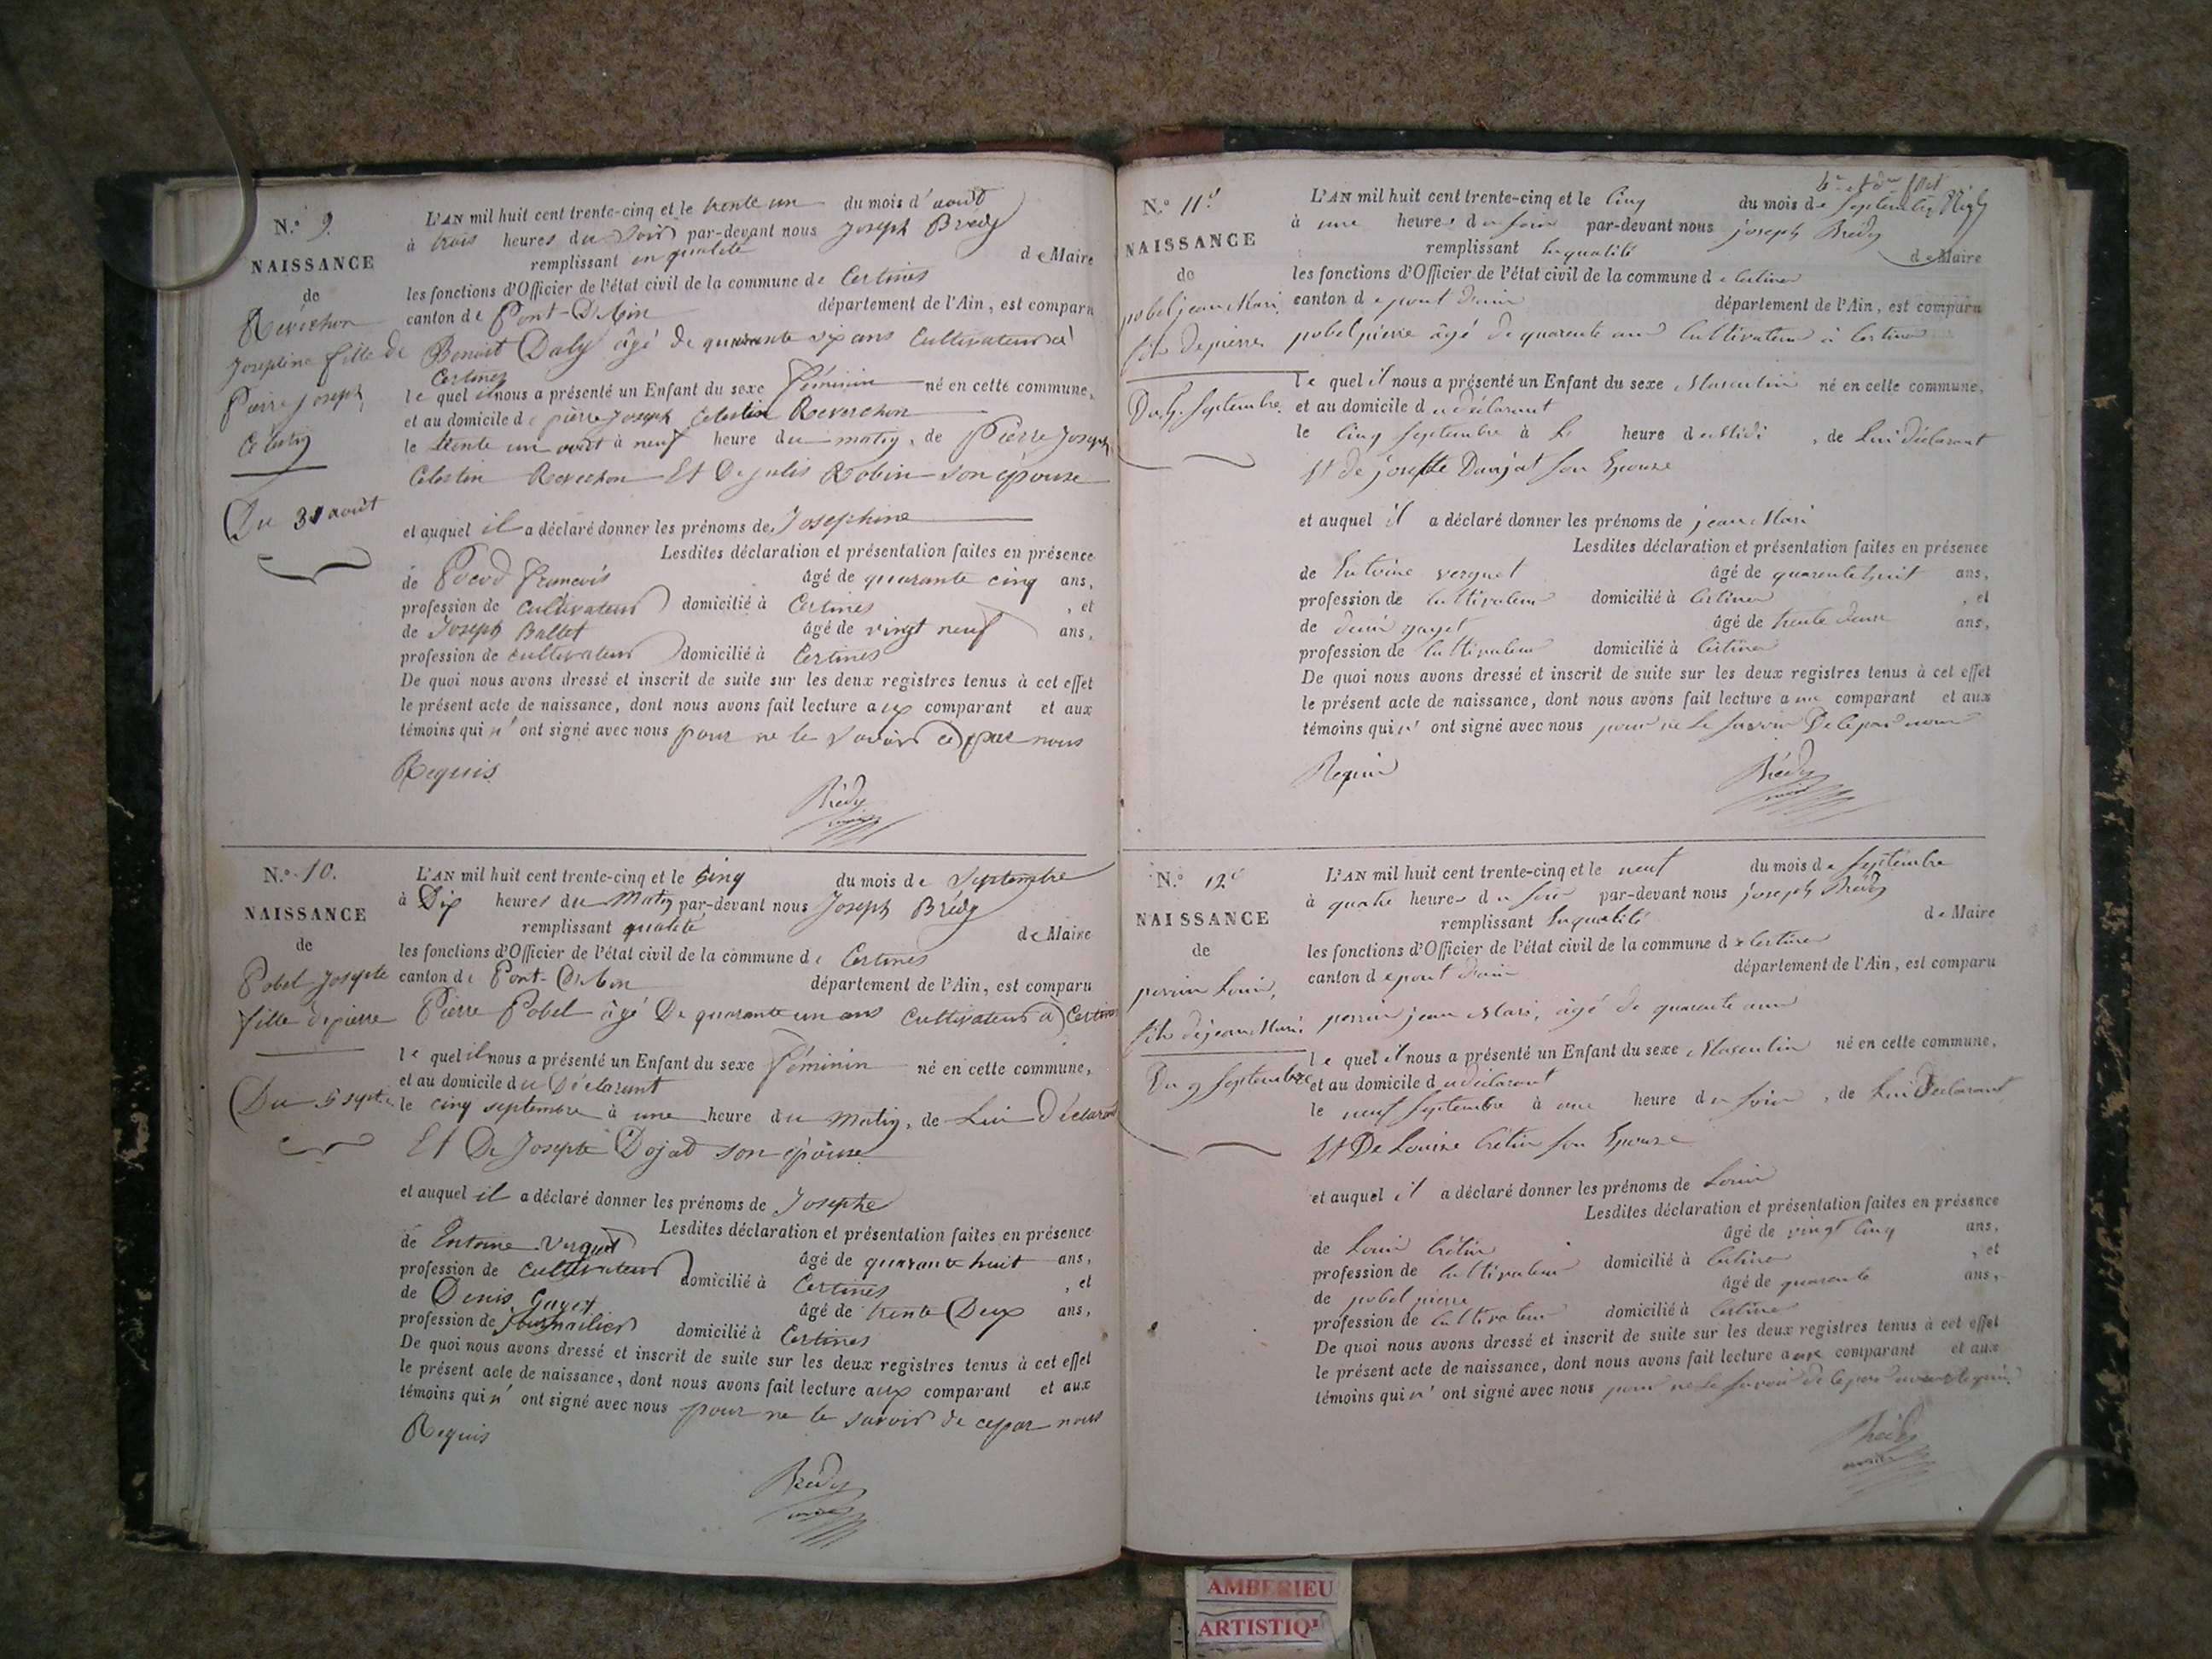 N.° 9.
NAISSANCE
de
Reverchon
Josephine fille de
Pierre Joseph
Célestin
Du 31 août
L'AN mil huit cent trente-cinq et le trente un du mois d'août
à trois heures du Soir par-devant nous Joseph Brédy
remplissant en qualité de Maire
les fonctions d'Officier de l'état civil de la commune de Certines
canton de Pont-D'Ain département de l'Ain, est comparu
Benoit Daly âgé de quarante six ans Cultivateur à
Certines
lequel il nous a présenté un Enfant du sexe féminin né en cette commune,
et au domicile de pierre Joseph Celestin Reverchon
le trente un août à neuf heure du matin, de Pierre Joseph
Celestin Reverchon Et De julie Robin son épouse
et auquel il a déclaré donner les prénoms de Josephine
Lesdites déclaration et présentation faites en présence
de Pocod francois âgé de quarante cinq ans,
profession de cultivateur domicilié à Certines, et
de Joseph Ballet âgé de vingt neuf ans,
profession de cultivateur domicilié à Certines
De quoi nous avons dressé et inscrit de suite sur les deux registres tenus à cet effet
le présent acte de naissance, dont nous avons fait lecture aux comparant et aux
témoins qui n'ont signé avec nous pour ne le savoir de ce par nous
Requis
Brédy
maire
N.° 10.
NAISSANCE
de
Pobel Josephte
fille de pierre
Du 5 septe
L'AN mil huit cent trente-cinq et le cinq du mois de Septembre
à Dix heures du Matin par-devant nous Joseph Brédy
remplissant qualité de Maire
les fonctions d'Officier de l'état civil de la commune de Certines
canton de Pont-D'Ain département de l'Ain, est comparu
Pierre Pobel âgé De quarante un ans Cultivateur à Certines
lequel il nous a présenté un Enfant du sexe féminin né en cette commune,
et au domicile du Déclarant
le cinq septembre à une heure du matin, de Lui Déclarant
Et De Josephte Dojat son épouse
et auquel il a déclaré donner les prénoms de Josephte
Lesdites déclaration et présentation faites en présence
de Entoine Verguet âgé de quarante huit ans,
profession de cultivateur domicilié à Certines, et
de Denis Gayet âgé de trente Deux ans,
profession de journalier domicilié à Certines
De quoi nous avons dressé et inscrit de suite sur les deux registres tenus à cet effet
le présent acte de naissance, dont nous avons fait lecture aux comparant et aux
témoins qui n'ont signé avec nous pour ne le savoir de ce par nous
Requis
Brédy
maire
N.° 11.e
NAISSANCE
de
pobel jean Mari,
fils de pierre
Du 5. Septembre.
L'AN mil huit cent trente-cinq et le cinq du mois de Septembre
à une heures du soir par-devant nous joseph Brédy
remplissant En qualité de Maire
les fonctions d'Officier de l'état civil de la commune de Certines
canton de pont d'ain département de l'Ain, est comparu
pobel pierre âgé de quarente ans Cultivateur à Certines
lequel il nous a présenté un Enfant du sexe Masculin né en cette commune,
et au domicile du déclarant
le cinq septembre à heure de Midi, de Lui déclarant
Et de josephte Danjat son Epouse
et auquel il a déclaré donner les prénoms de jean Mari
Lesdites déclaration et présentation faites en présence
de Entoine verguet âgé de quarente huit ans,
profession de Cultivateur domicilié à Certines, et
de denis gayet âgé de trente deux ans,
profession de Cultivateur domicilié à Certines
De quoi nous avons dressé et inscrit de suite sur les deux registres tenus à cet effet
le présent acte de naissance, dont nous avons fait lecture aux comparant et aux
témoins qui n'ont signé avec nous pour ne le savoir De ce par nous
Requis
Brédy
maire
N.° 12.e
NAISSANCE
de
perrin Louis,
fils de jean Mari.
Du 9 Septembre
L'AN mil huit cent trente-cinq et le neuf du mois de Septembre
à quatre heures du soir par-devant nous joseph Brédy
remplissant En qualité de Maire
les fonctions d'Officier de l'état civil de la commune de Certines
canton de pont d'ain département de l'Ain, est comparu
perrin jean Mari, âgé de quarante ans
lequel il nous a présenté un Enfant du sexe Masculin né en cette commune,
et au domicile du déclarant
le neuf septembre à une heure du soir, de Lui Déclarant
Et De Louise Crétin son Epouse
et auquel il a déclaré donner les prénoms de Louis
Lesdites déclaration et présentation faites en présence
de Louis Crétin âgé de vingt cinq ans,
profession de Cultivateur domicilié à Certines, et
de pobel pierre âgé de quarente ans,
profession de Cultivateur domicilié à Certines
De quoi nous avons dressé et inscrit de suite sur les deux registres tenus à cet effet
le présent acte de naissance, dont nous avons fait lecture aux comparant et aux
témoins qui n'ont signé avec nous pour ne le savoir de ce par nous Requis.
Brédy
maire
AMBERIEU
ARTISTIQ